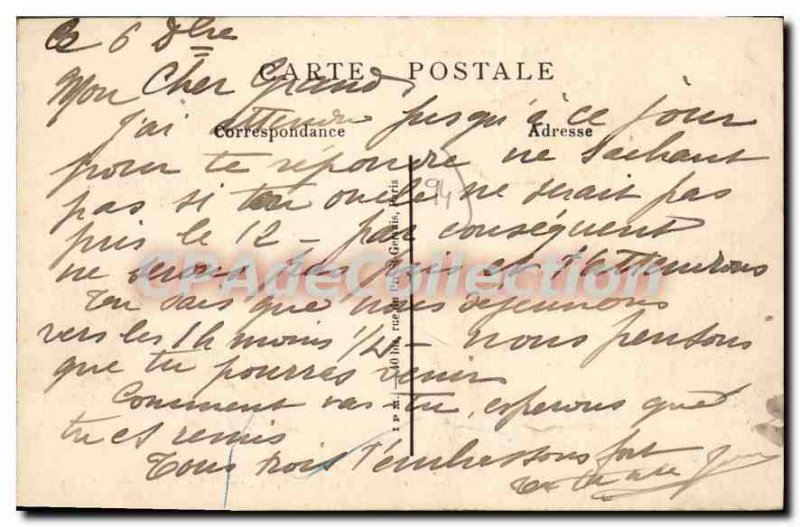 Ce 6 Dbre
CARTE POSTALE
Mon Cher Grand,
Correspondance
Adresse
j'ai attendu jusqu'à ce jour
pour te répondre ne sachant
pas si ton oncle ne serait pas
pris le 12 - par conséquent
ne serons pas pris et t'attendrons
Tu sais que nous déjeunons
vers les 1h moins 1/4 - nous pensons
que tu pourras venir
Comment vas-tu, esperons que
tu es remis
Tous trois t'embrassons fort
94
I P M. - 40 bis, rue du Gervais, Paris
CPAdeCollection